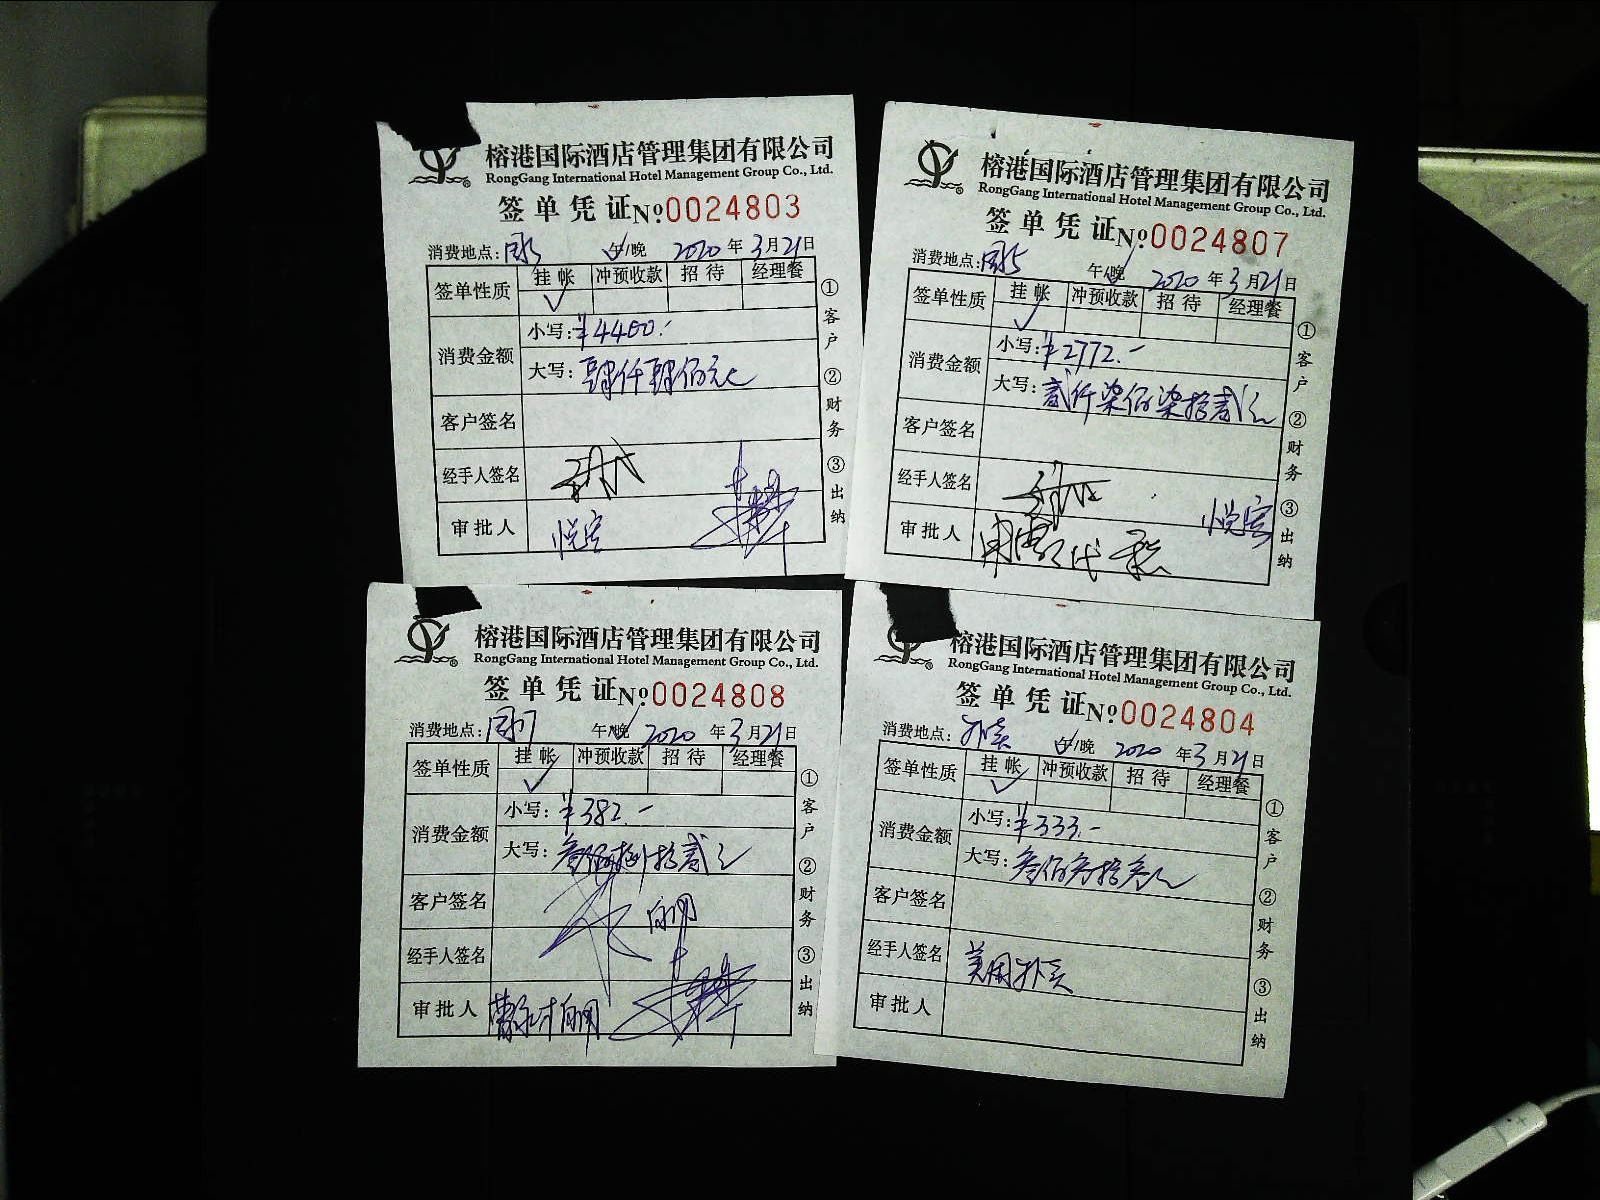 榕港国际酒店管理集团有限公司
RongGang International Hotel Management Group Co., Ltd.
签单凭证 №0024803
消费地点: 午/晚 2020年3月21日
签单性质 挂帐 冲预收款 招待 经理餐
✓
消费金额 小写:¥4400.-
大写:肆仟肆佰元
客户签名
经手人签名
审批人 悦宾
①客户 ②财务 ③出纳
榕港国际酒店管理集团有限公司
RongGang International Hotel Management Group Co., Ltd.
签单凭证 №0024807
消费地点: 午/晚 2020年3月21日
签单性质 挂帐 冲预收款 招待 经理餐
✓
消费金额 小写:¥2772.-
大写:贰仟柒佰柒拾贰元
客户签名
经手人签名 悦宾
审批人
①客户 ②财务 ③出纳
榕港国际酒店管理集团有限公司
RongGang International Hotel Management Group Co., Ltd.
签单凭证 №0024808
消费地点: 午/晚 2020年3月21日
签单性质 挂帐 冲预收款 招待 经理餐
✓
消费金额 小写:¥382.-
大写:叁佰捌拾贰元
客户签名
经手人签名
审批人
①客户 ②财务 ③出纳
榕港国际酒店管理集团有限公司
RongGang International Hotel Management Group Co., Ltd.
签单凭证 №0024804
消费地点:外卖 午/晚 2020年3月21日
签单性质 挂帐 冲预收款 招待 经理餐
✓
消费金额 小写:¥333.-
大写:叁佰叁拾叁元
客户签名
经手人签名 美团外卖
审批人
①客户 ②财务 ③出纳